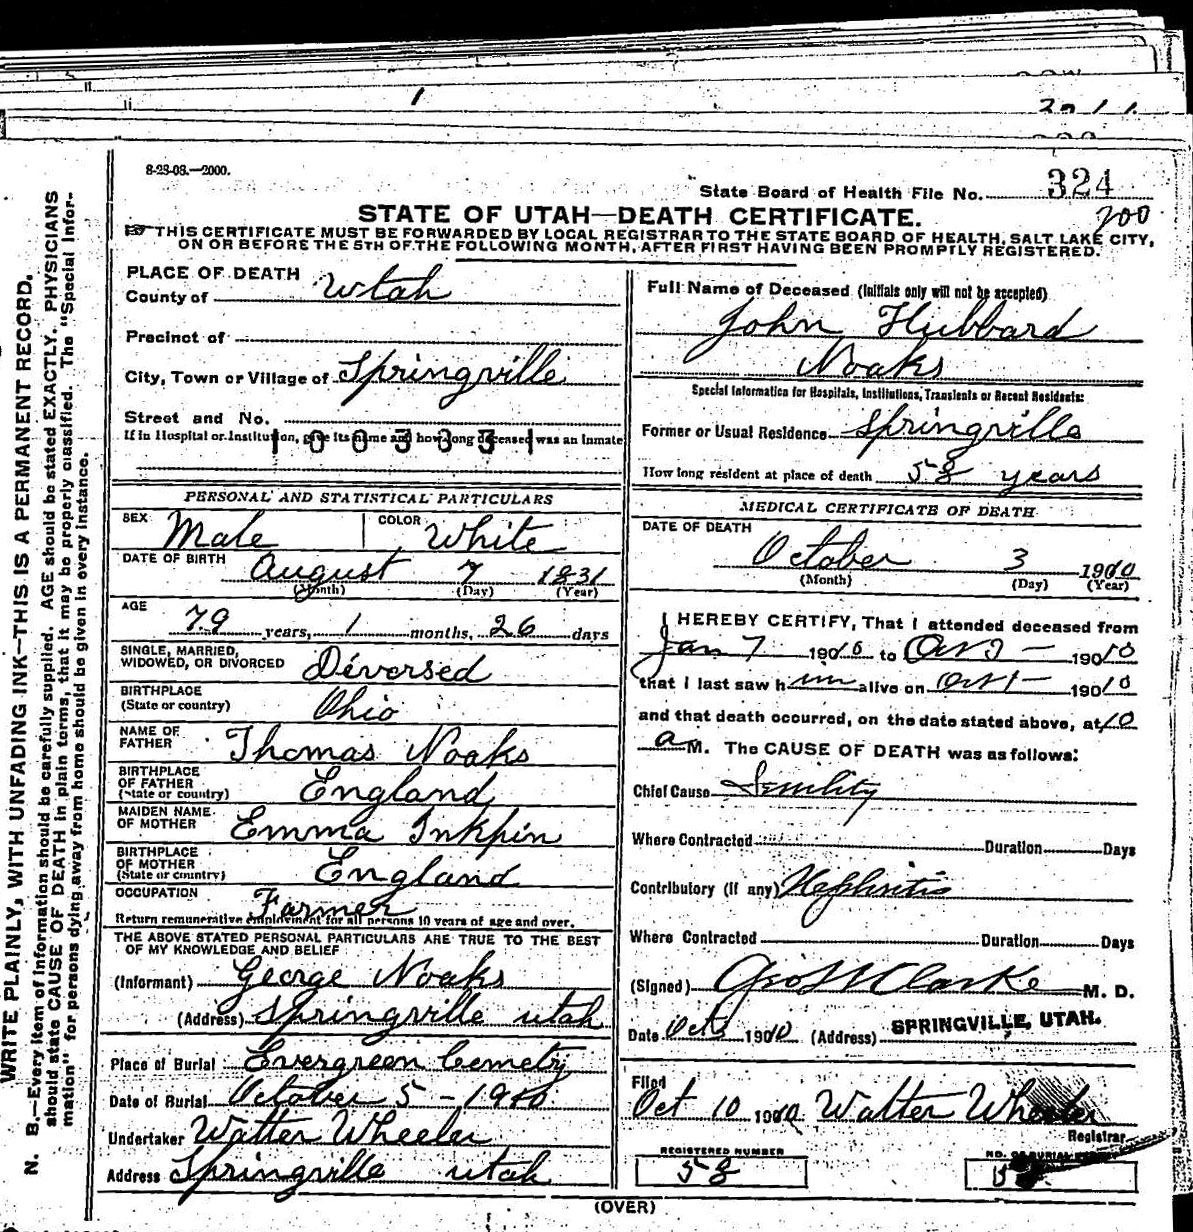 8-28-08.—2000.
State Board of Health File No. 324
200
STATE OF UTAH—DEATH CERTIFICATE.
THIS CERTIFICATE MUST BE FORWARDED BY LOCAL REGISTRAR TO THE STATE BOARD OF HEALTH, SALT LAKE CITY,
ON OR BEFORE THE 5TH OF THE FOLLOWING MONTH, AFTER FIRST HAVING BEEN PROMPTLY REGISTERED.
WRITE PLAINLY, WITH UNFADING INK—THIS IS A PERMANENT RECORD.
N. B.—Every item of information should be carefully supplied. AGE should be stated EXACTLY. PHYSICIANS
should state CAUSE OF DEATH in plain terms, that it may be properly classified. The "Special Infor-
mation" for persons dying away from home should be given in every instance.
PLACE OF DEATH
County of Utah
Precinct of
City, Town or Village of Springville
Street and No.
If in Hospital or Institution, give its name and how long deceased was an inmate
1003331
PERSONAL AND STATISTICAL PARTICULARS
SEX Male COLOR White
DATE OF BIRTH August 7 1831
(Month) (Day) (Year)
AGE
79 years, 1 months, 26 days
SINGLE, MARRIED,
WIDOWED, OR DIVORCED Diversed
BIRTHPLACE
(State or country) Ohio
NAME OF
FATHER Thomas Noaks
BIRTHPLACE
OF FATHER
(State or country) England
MAIDEN NAME
OF MOTHER Emma Inkpin
BIRTHPLACE
OF MOTHER
(State or country) England
OCCUPATION Farmer
Return remunerative employment for all persons 10 years of age and over.
THE ABOVE STATED PERSONAL PARTICULARS ARE TRUE TO THE BEST
OF MY KNOWLEDGE AND BELIEF
(Informant) George Noaks
(Address) Springville utah
Place of Burial Evergreen Cemetry
Date of Burial October 5 - 1910
Undertaker Walter Wheeler
Address Springville utah
Full Name of Deceased (Initials only will not be accepted)
John Hubbard
Noaks
Special Information for Hospitals, Institutions, Transients or Recent Residents:
Former or Usual Residence Springville
How long resident at place of death 58 years
MEDICAL CERTIFICATE OF DEATH
DATE OF DEATH
October 3 1910
(Month) (Day) (Year)
I HEREBY CERTIFY, That I attended deceased from
Jan 7 1910 to Oct 3 - 1910
that I last saw him alive on Oct 1 - 1910
and that death occurred, on the date stated above, at 10
a M. The CAUSE OF DEATH was as follows:
Chief Cause Senility
Where Contracted Duration Days
Contributory (if any) Nephritis
Where Contracted Duration Days
(Signed) Geo Clarke M. D.
Date Oct 1910 (Address) SPRINGVILLE, UTAH.
Filed
Oct 10 1910 Walter Wheeler
Registrar
REGISTERED NUMBER
58
NO. OF BURIAL
(OVER)